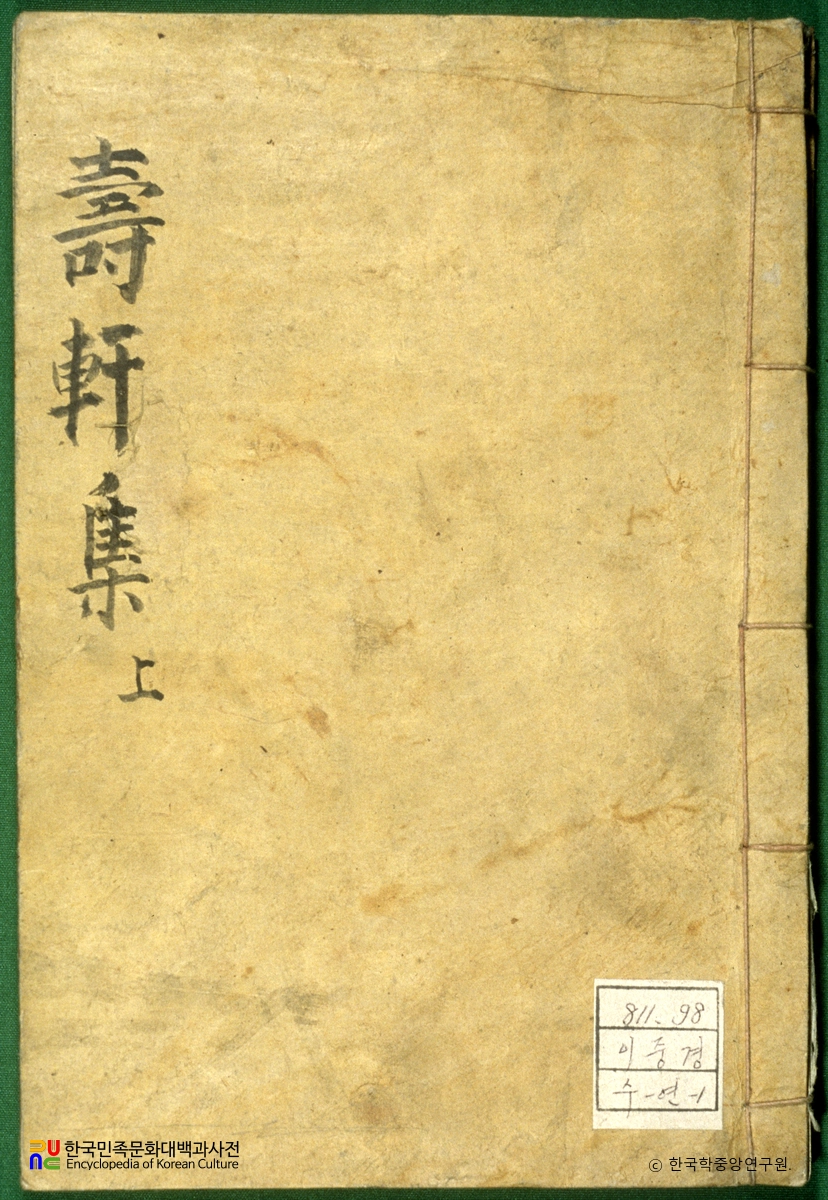 壽軒集 上
811-98
이중경
수-연-1
한국민족문화대백과사전
Encyclopedia of Korean Culture
© 한국학중앙연구원.